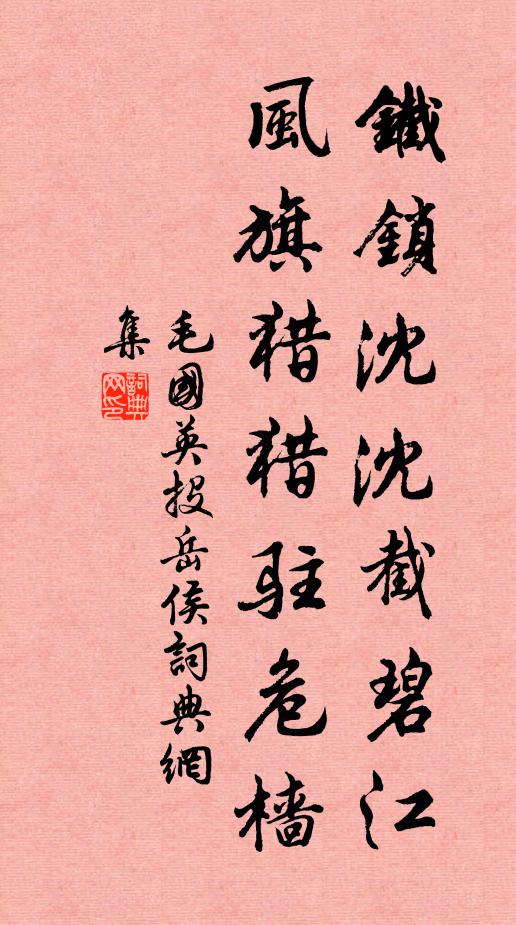 鐵鎖沈沈截碧江
風旗猎猎駐危檣
毛國英投岳侯詞典網
集
詞典
网印